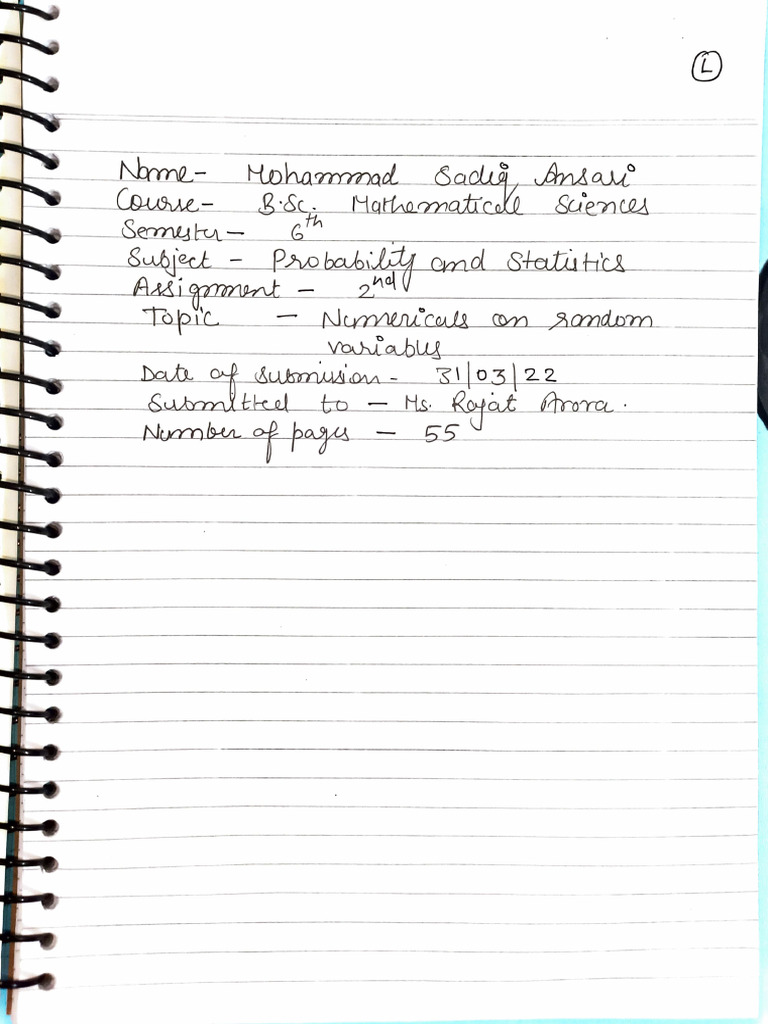 1
Name- Mohammad Sadiq Ansari
Course- B.Sc. Mathematical Sciences
Semester- 6th
Subject - Probability and Statistics
Assignment - 2nd
Topic - Numericals on random
variables
Date of submission- 31/03/22
Submitted to - Ms. Rajat Arora.
Number of pages - 55